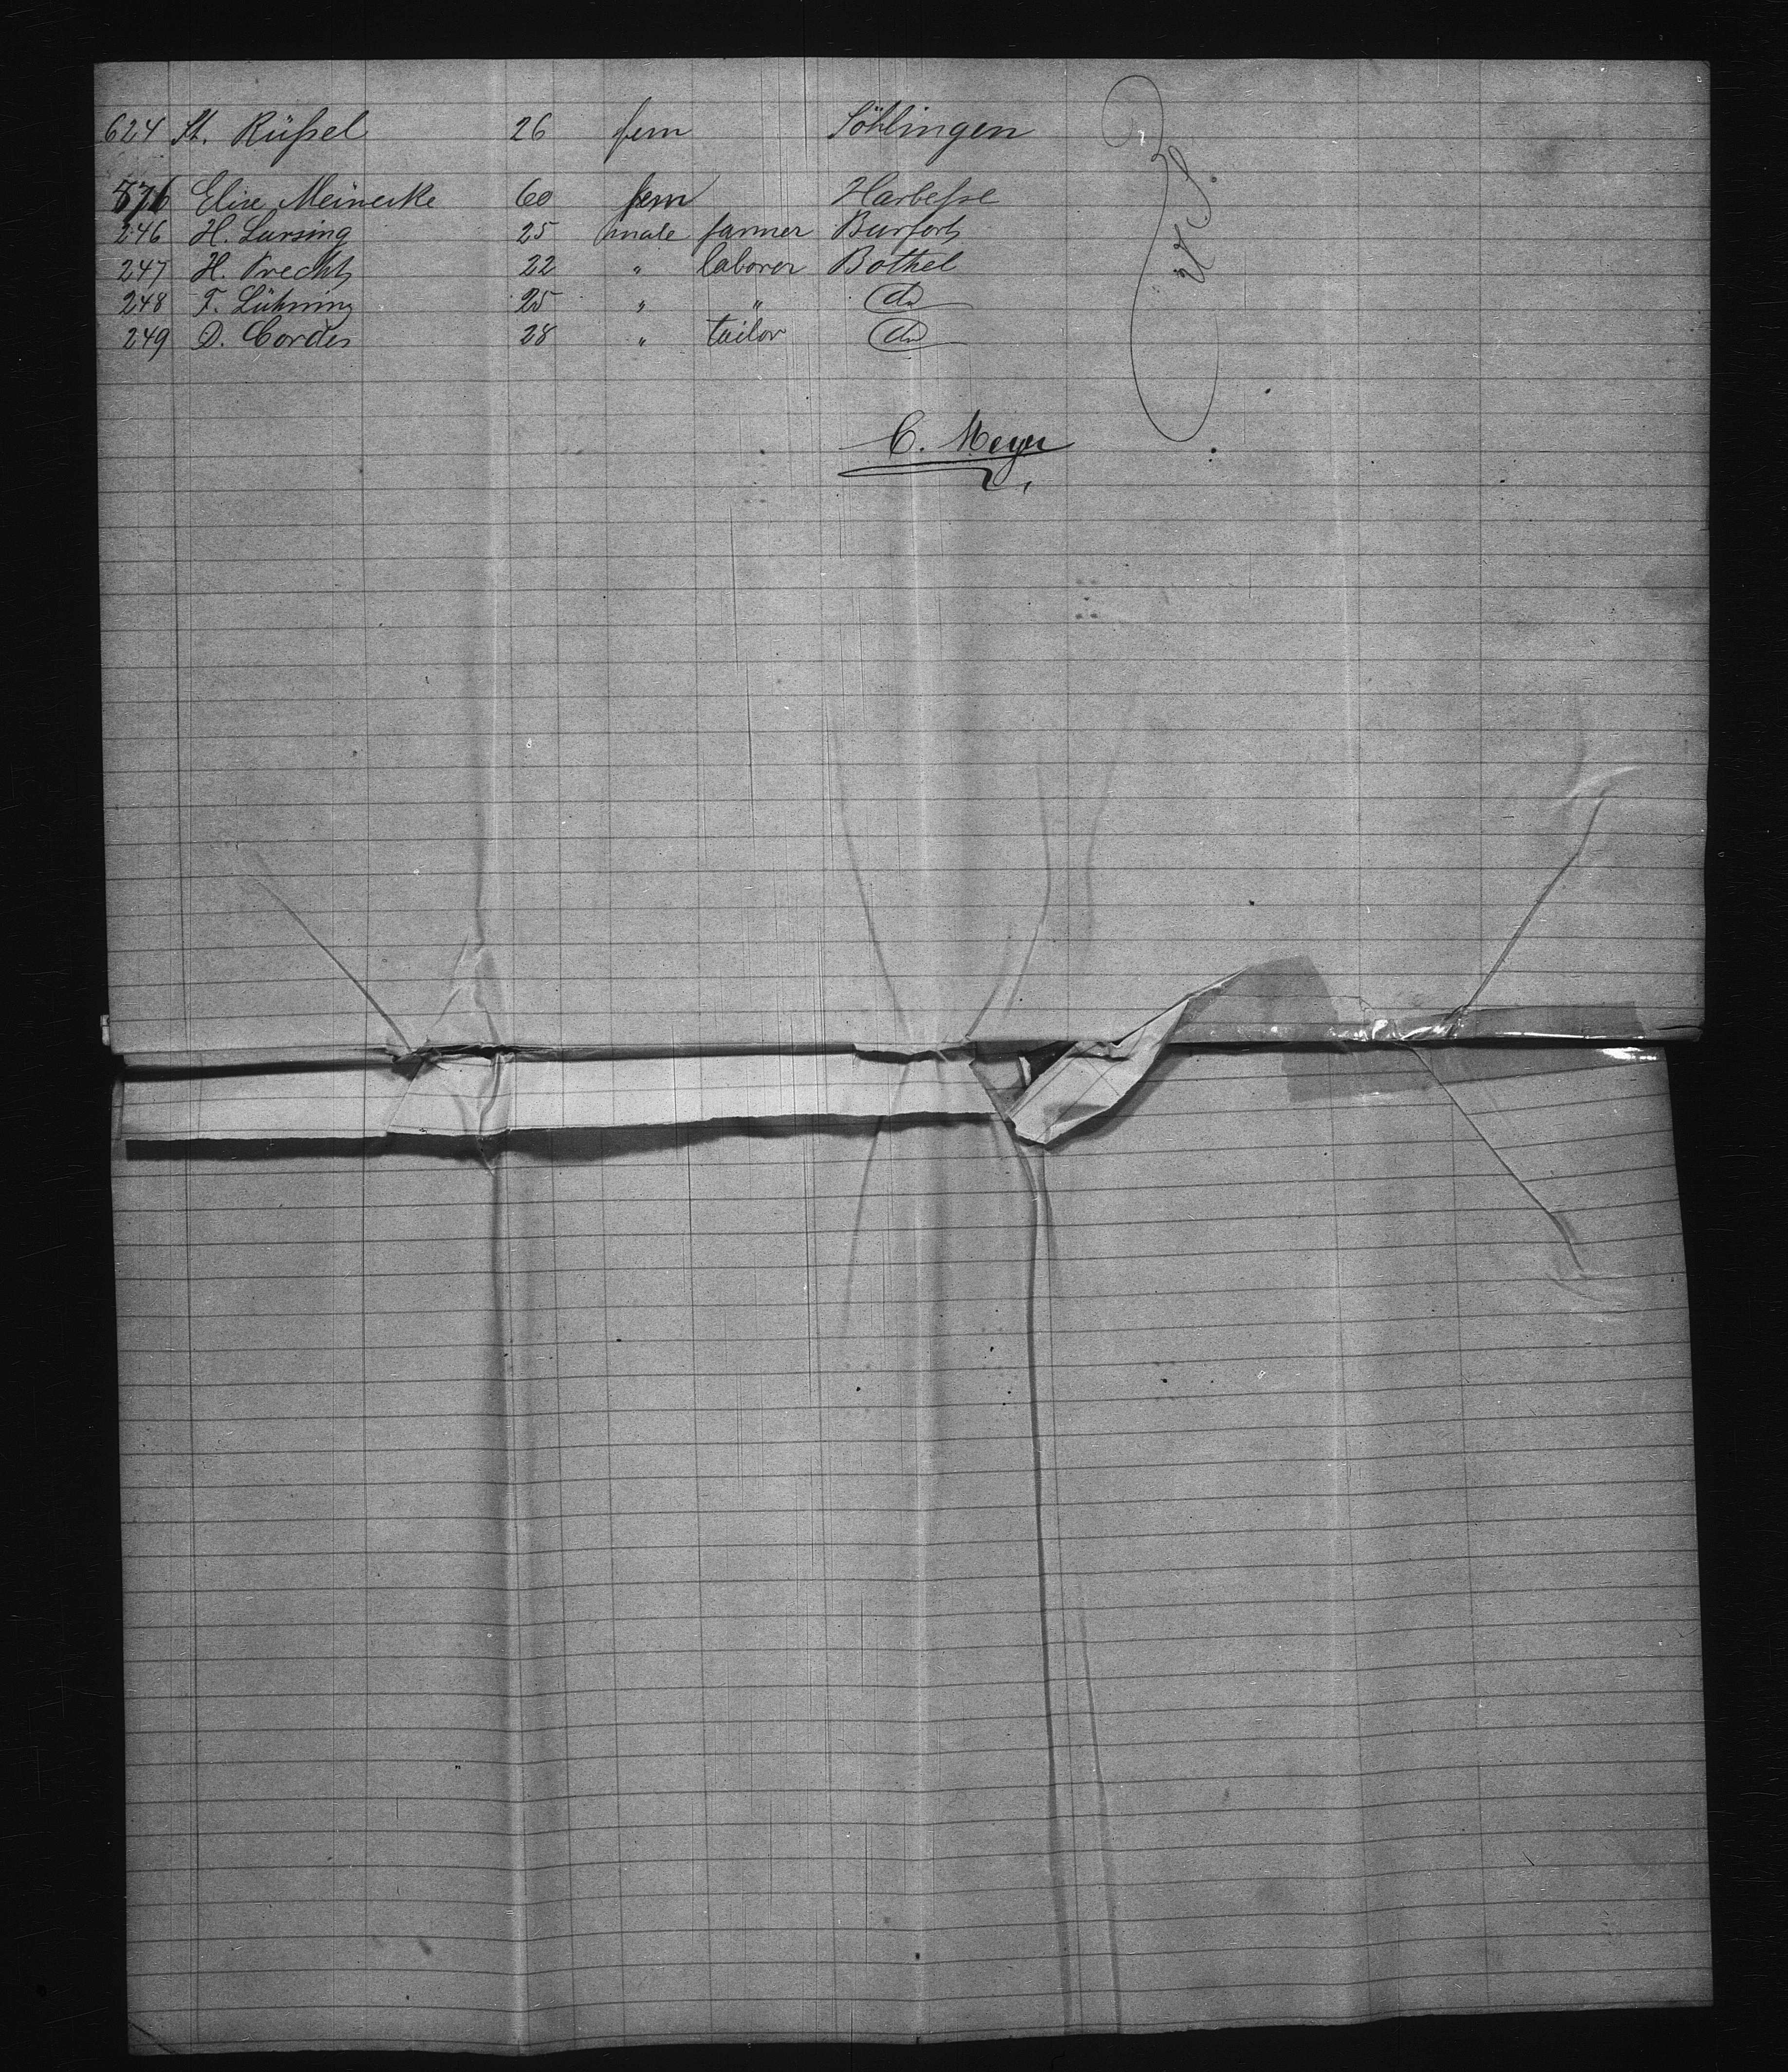 624 St. Rüßel 26 fem Söhlingen
876 Elise Meinecke 60 fem Harbeße
246 H. Lursing 25 male farmer Burforth
247 H. Precht 22 " laborer Bothel
248 F. Lühning 25 " " do
249 D. Cordes 28 " tailor do
C. Meyer
U.S.